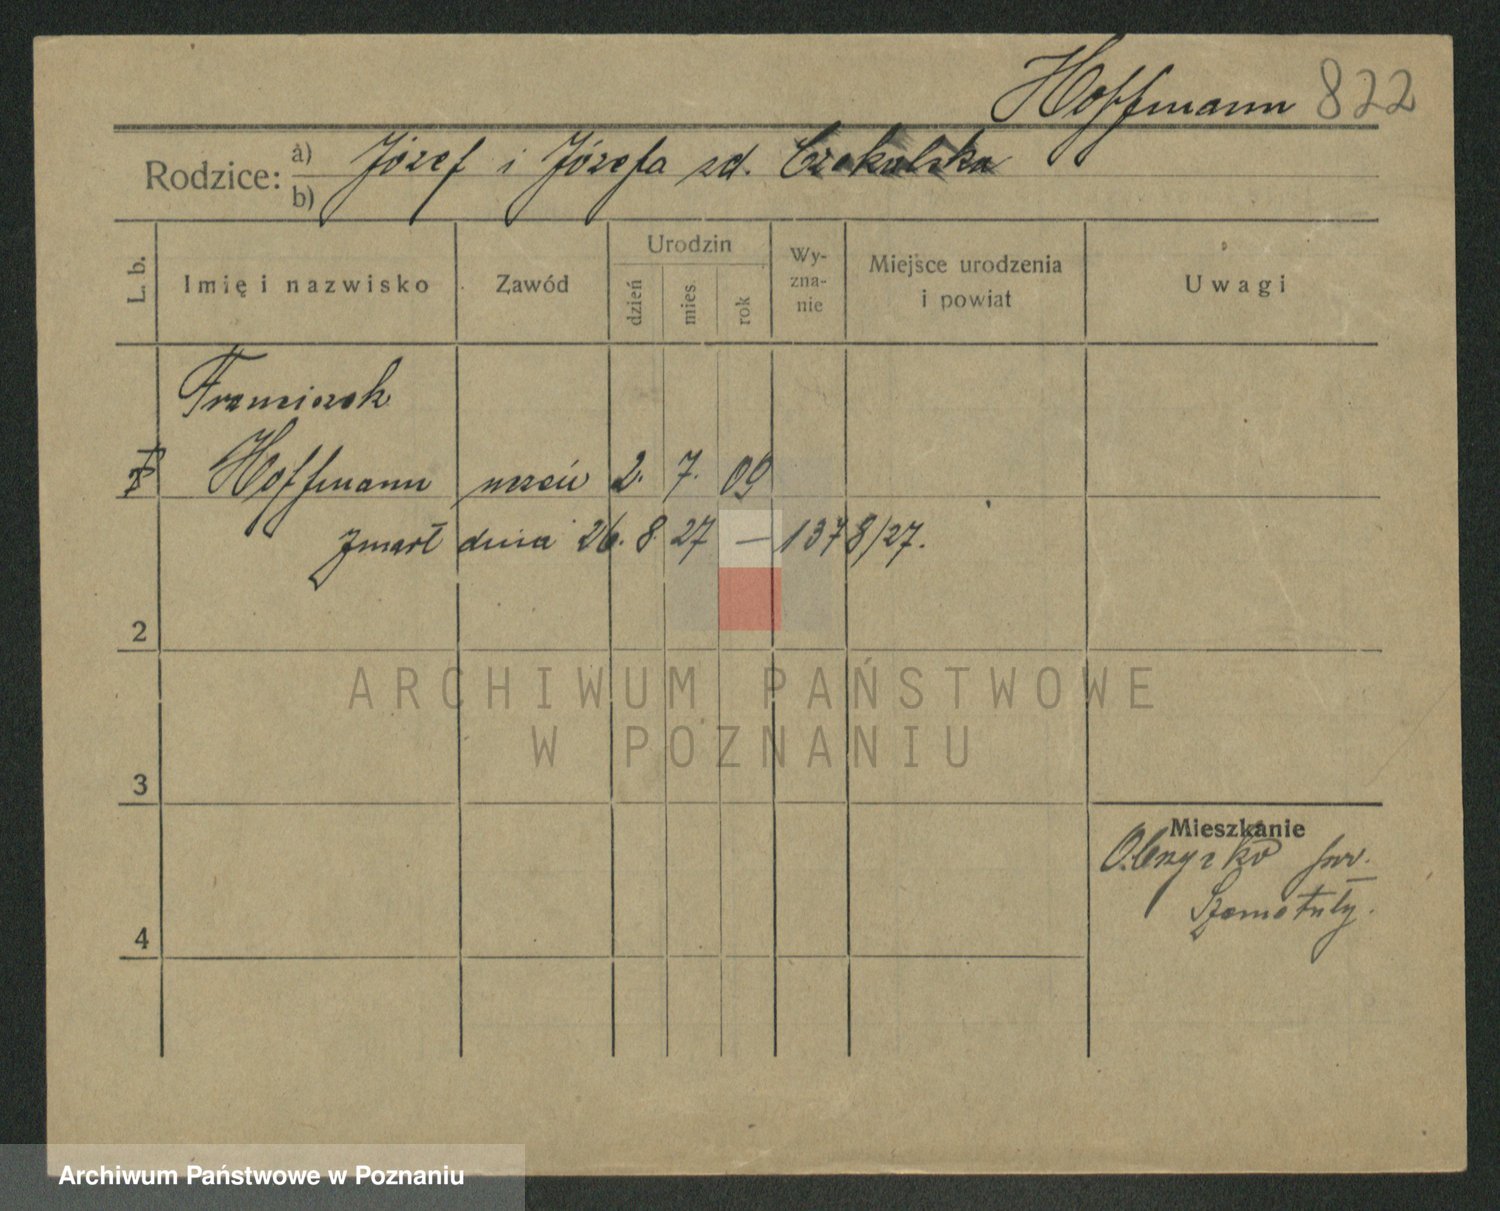 Hoffmann 822
Rodzice: a) b) Józef i Józefa zd. Czekalska
L. b.
Imię i nazwisko
Zawód
Urodzin
dzień
mies
rok
Wy-
zna-
nie
Miejsce urodzenia
i powiat
Uwagi
Franciszek
Hoffmann uczeń 2. 7. 09
zmarł dnia 26. 8. 27 — 1378/27.
2
ARCHIWUM PAŃSTWOWE
W POZNANIU
3
Mieszkanie
Obrzycko pow.
Szamotuły.
4
Archiwum Państwowe w Poznaniu